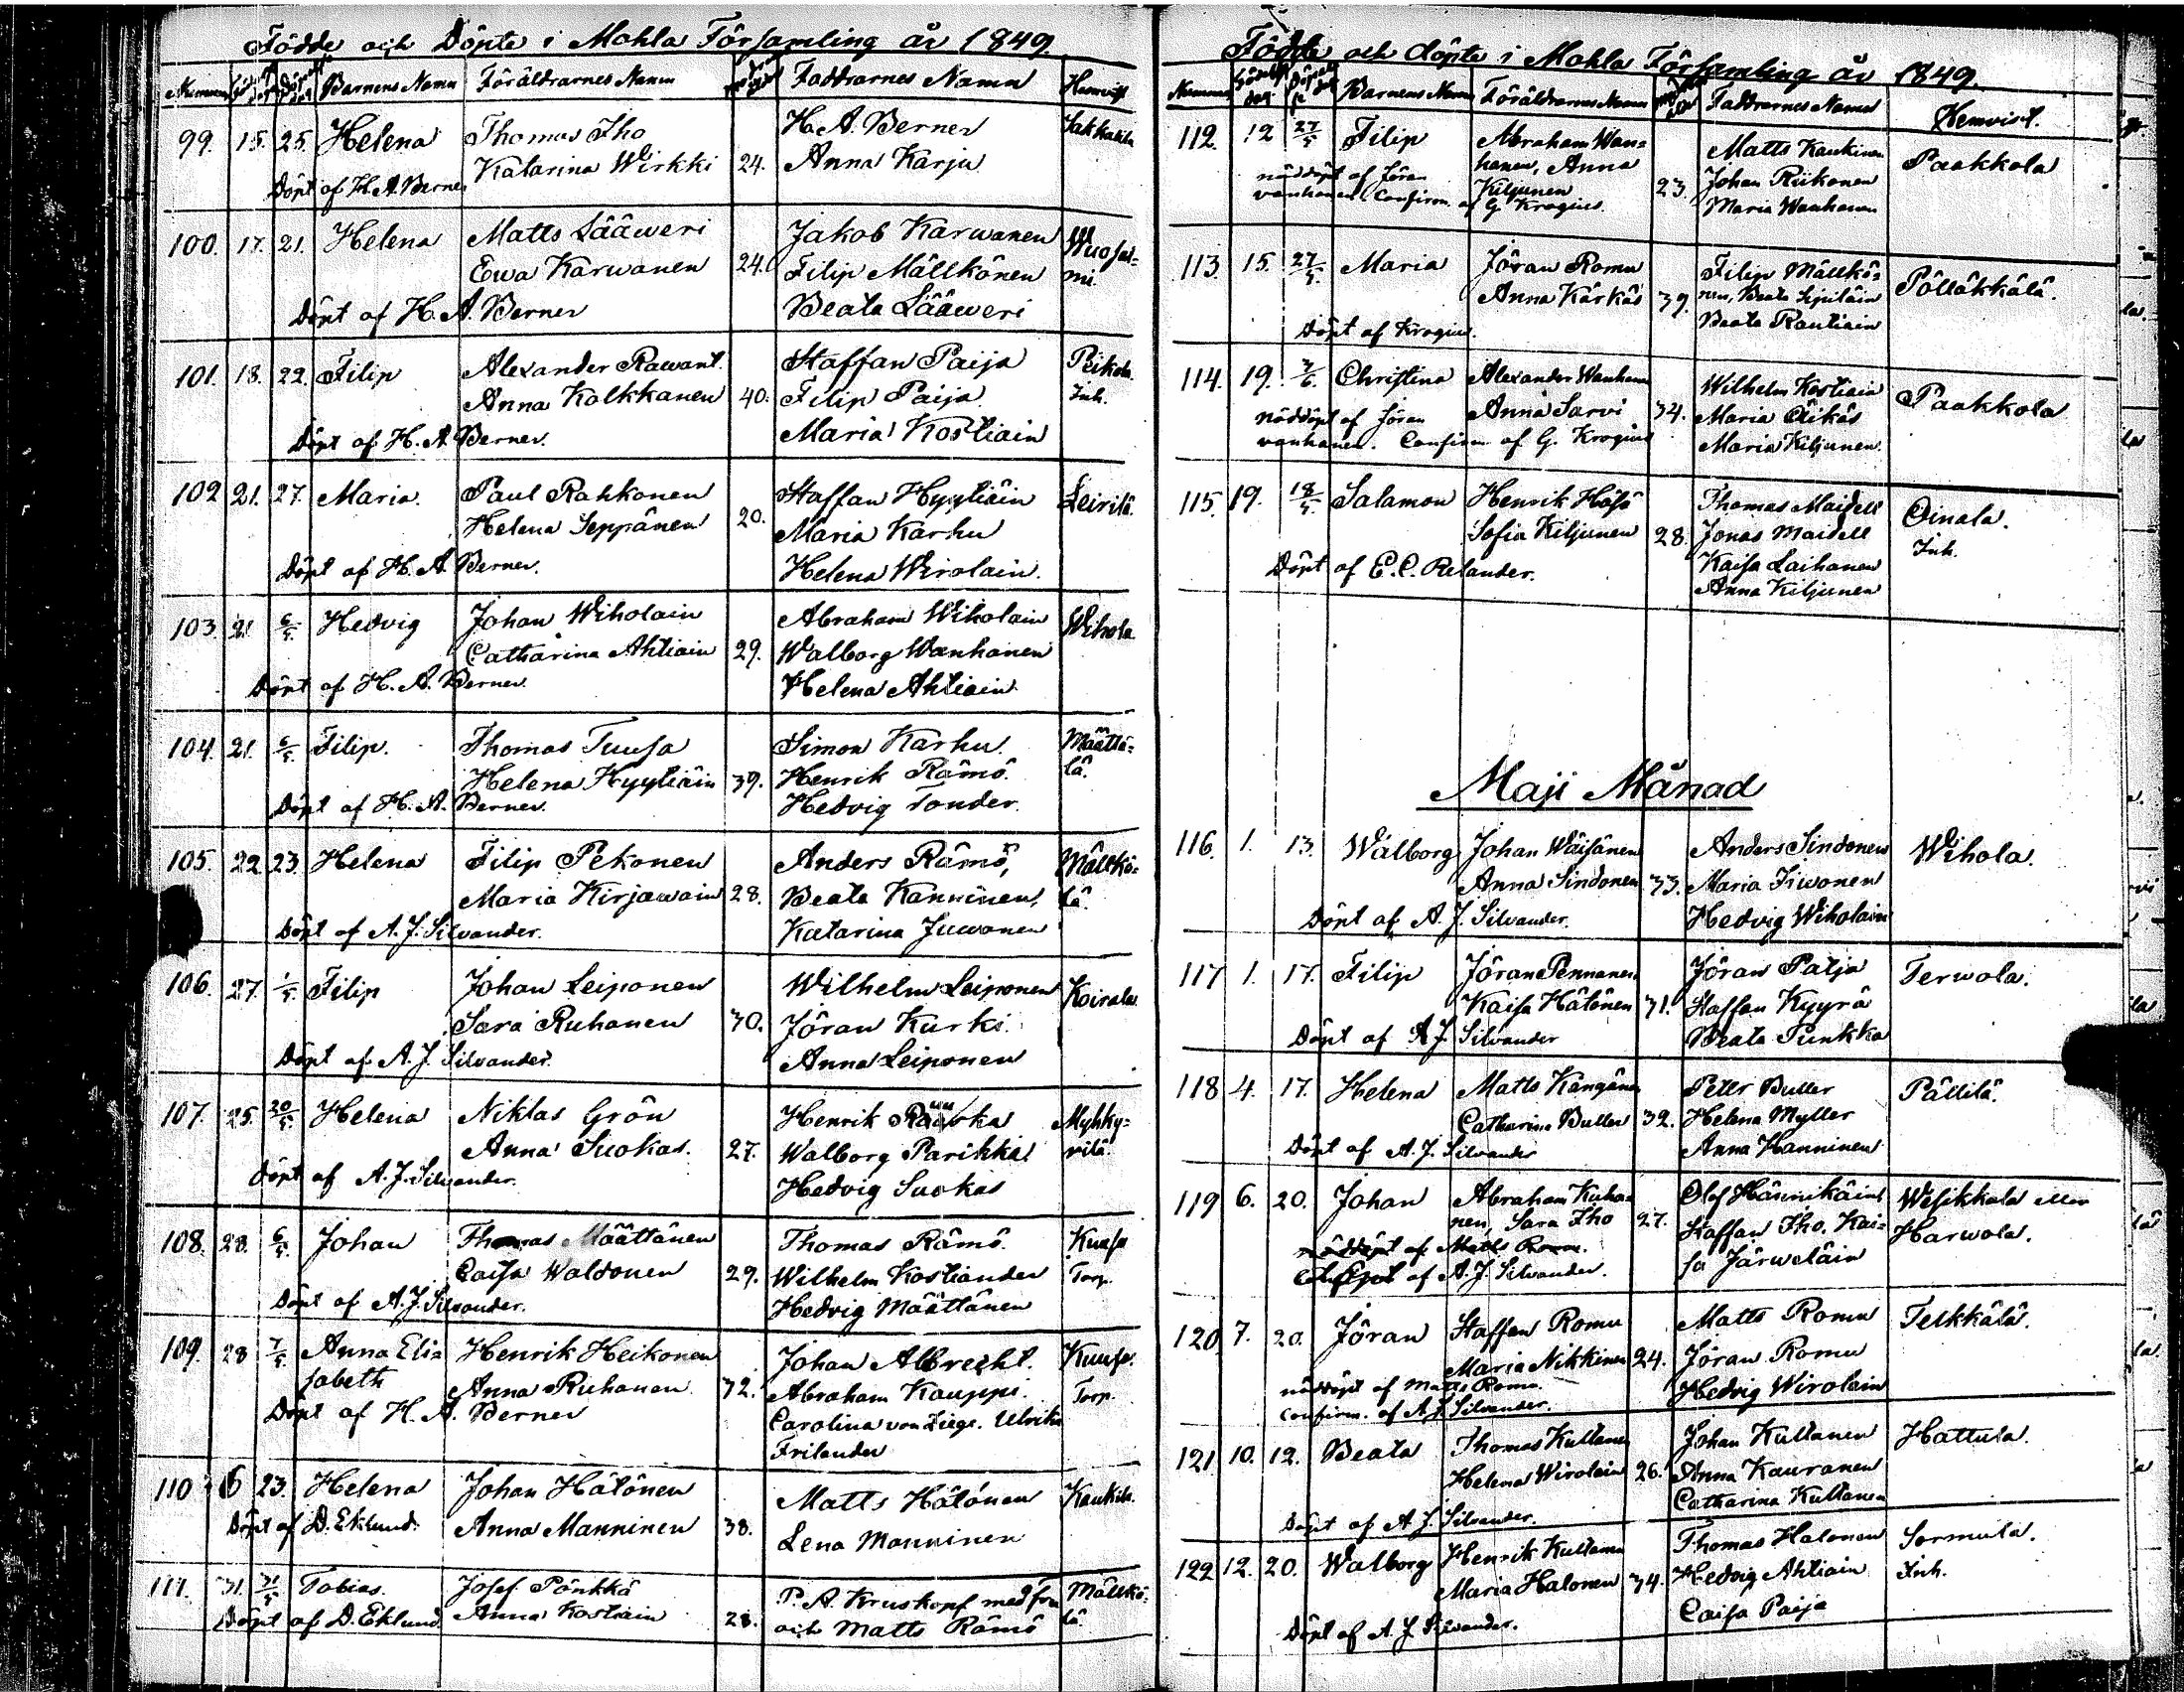 Födde och Döpte i Mohla Församling år 1849.
Barnens Namn Föräldrarnes Namn Faddrarnes Namn Hemvist
99. 15. 25. Helena Thomas Iho H. A. Berner Sakkala
Katarina Wirkki 24. Anna Karju
Döpt af H. A. Berner
100. 17. 21. Helena Matts Sääweri Jakob Karwanen Wuosal=
Ewa Karwanen 24. Filip Mällkönen mi.
Döpt af H. A. Berner Beata Sääweri
101. 18. 22. Filip Alexander Rawant. Staffan Paija Peikola.
Anna Kolkkanen 40. Filip Paija Inh.
Döpt af H. A. Berner. Maria Kostiain
102 21. 27. Maria. Paul Rahkonen Staffan Hyytiäin Leirilä.
Helena Seppänen 20. Maria Karhu
Döpt af H. A. Berner. Helena Wirolain.
103. 21 6/5 Hedvig Johan Wiholain Abraham Wiholain Wihola.
Catharina Ahtiain 29. Walborg Wanhanen
Döpt af H. A. Berner. Helena Ahtiain
104. 21. 6/5 Filip. Thomas Tuusa Simon Karhu. Määttä=
Helena Hyytiäin 39. Henrik Rämö. lä.
Döpt af H. A. Berner. Hedvig Tonder.
105. 22. 23. Helena Filip Pekonen Anders Rämö, Mällkö=
Maria Kirjawain 28. Beata Kanninen, lä.
Döpt af A. J. Silvander. Katarina Juwonen
106. 27. 1/5 Filip Johan Leiponen Wilhelm Leiponen Koirala
Sara Ruhanen 30. Jöran Kurki
Döpt af A. J. Silvander. Anna Leiponen
107. 25. 20/5 Helena Niklas Grön Henrik Myhky=
Anna Suokas. 27. Walborg Parikka rilä.
Döpt af A. J. Silvander. Hedvig Suokas
108. 28. 6/5 Johan Thomas Määttänen Thomas Rämö. Kuusa
Caisa Waldonen 29. Wilhelm Kostiander Torp.
Döpt af A. J. Silvander. Hedvig Määttänen
109. 28 7/5 Anna Eli= Henrik Heikonen Johan Albrecht. Kuusa.
sabeth Anna Ruhanen 32. Abraham Kauppi. Torp.
Döpt af H. A. Berner Carolina von Ziege. Ulrika
Frilander
110 6 23. Helena Johan Hätönen Matts Hätönen Kaukila.
Döpt af D. Eklund. Anna Manninen 38. Lena Manninen
111. 31. 31/5 Tobias. Josef Pönkkä P. A. Kruskopf med fru Mällkö=
Döpt af D. Eklund Anna Kostiain 28. och Matts Rämö lä.
Födde och döpte i Mohla Församling år 1849.
Barnens Namn Föräldrarnes Namn Faddrarnes Namn Hemvist.
112. 12 27/5 Filip Abraham Wan= Matts Kaukinen Paakkola
nöddöpt af Jöran hanen, Anna Johan Riikonen
vanhanen Confirm. af G. Krogius. Kiljunen 23. Maria Wanhanen
113. 15. 27/5 Maria Jöran Romu Filip Mällkö= Pölläkkälä.
Anna Kärkäs 39. nen, Beata Sipiläin
Döpt af Krogius. Beata Rautiain
114. 19. 3/6 Christina Alexander Wanhanen Wilhelm Kostiain Paakkola
nöddöpt af Jöran Anna Sarvi 34. Maria Äikäs
vanhanen. Confirm af G. Krogius Maria Kiljunen.
115. 19. 18/5 Salamon Henrik Häsö Thomas Maidell Oinala.
Sofia Kiljunen 28. Jonas Maidell Inh.
Döpt af E. C. Relander. Kaisa Laihanen
Anna Kiljunen
Maji Månad
116. 1. 13. Walborg Johan Wäisänen Anders Sindonen Wihola.
Anna Sindonen 33. Maria Siwonen
Döpt af A. J. Silvander. Hedvig Wiholain
117 1. 17. Filip Jöran Pennanen Jöran Patja Terwola.
Kaisa Hätönen 31. Staffan Kyyrä
Döpt af A J. Silvander Beata Punkka
118 4. 17. Helena Matts Kangänen Peter Buller Pällilä.
Catharina Buller 32. Helena Myller
Döpt af A. J. Silvander Anna Hanninen
119 6. 20. Johan Abraham Kuha= Olof Hännikäin Wesikkala eller
nen, Sara Iho 27. Staffan Iho. Kai= Harwola.
nöddöpt af Matts Romu. sa Järweläin
af A. J. Silvander.
120 7. 20. Jöran Staffan Romu Matts Romu Telkkälä.
Maria Nikkinen 24. Jöran Romu
nöddöpt af Matts Romu. Hedvig Wirolain
Confirm. af A. J. Silvander.
121 10. 12. Beata Thomas Kultanen Johan Kultanen Hattula.
Helena Wirolain 26. Anna Kauranen
Döpt af A J. Silvander. Catharina Kultanen
122 12. 20. Walborg Henrik Kultanen Thomas Halonen Sormula.
Maria Halonen 34. Hedvig Ahtiain Inh.
Döpt af A. J. Silvander. Caisa Paija